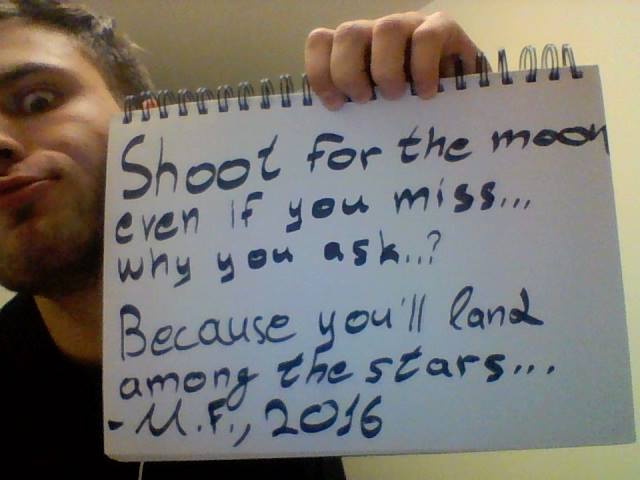 Shoot for the moon
even if you miss...
why you ask..?
Because you'll land
among the stars...
- M.F., 2016